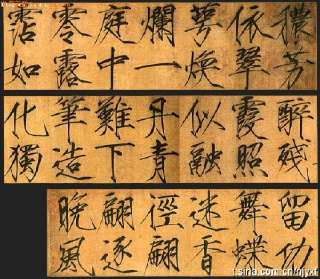 穠芳
依翠
萼煥
爛一
庭中
零露
霑如
醉殘
霞照
似融
丹青
難下
筆造
化獨
留功
舞蝶
迷香
徑翩
翩逐
晚風
t.sina.com.cn/njyxf